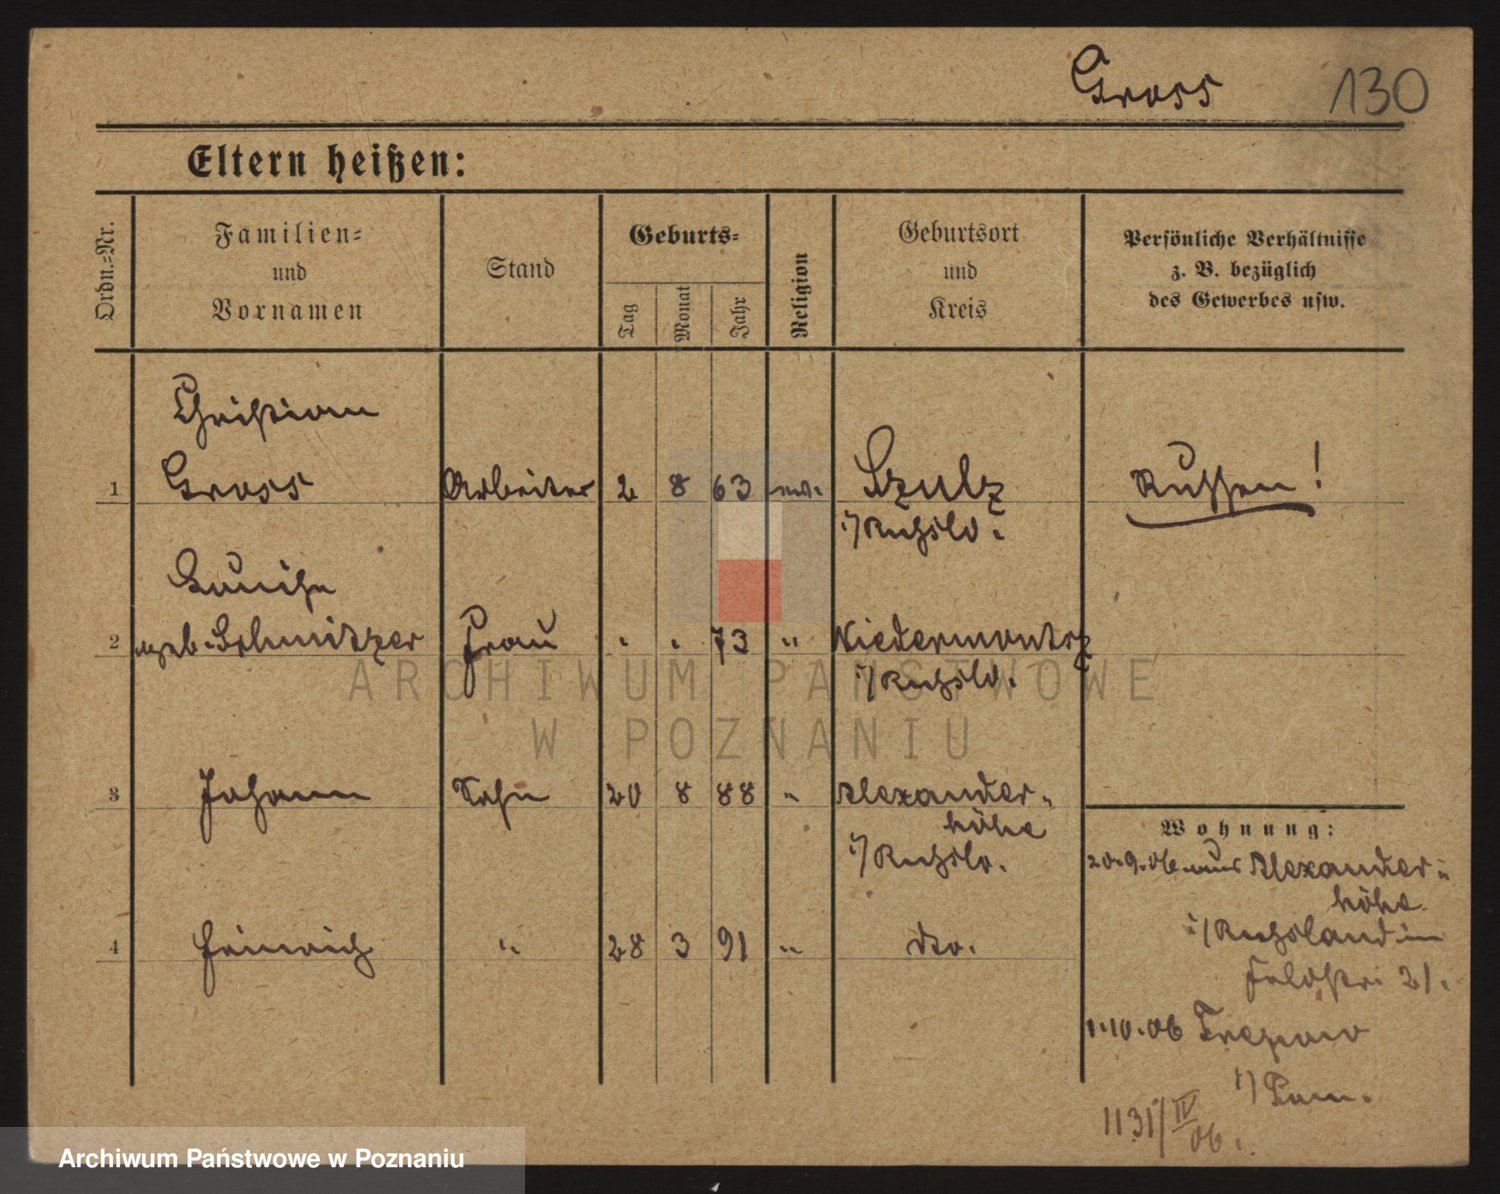 Gross 130
Eltern heißen:
Ordn.-Nr.
Familien-
und
Vornamen
Stand
Geburts-
Tag
Monat
Jahr
Religion
Geburtsort
und
Kreis
Persönliche Verhältnisse
z. B. bezüglich
des Gewerbes usw.
Christian
1 Gross Arbeiter 2 8 63 ev. Szulz Russen!
i/Rußld.
Luise
2 geb. Schmitzer Frau " " 73 " Niedermontrz
i/Rußld.
3 Johann Sohn 20 8 88 " Alexander-
höhe
i/Rußld.
4 Heinrich " 28 3 91 " dto.
Wohnung:
20.9.06. aus Alexander-
höhe
i/Russland in
Feldstr. 21.
1.10.06
i/Pom.
1131/IV
06.
ARCHIWUM PAŃSTWOWE
W POZNANIU
Archiwum Państwowe w Poznaniu